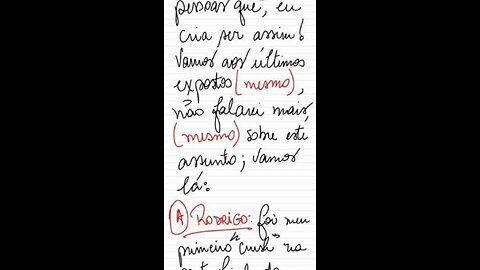 pessoas que, eu
cria ser assim!
Vamos aos últimos
expostos (mesmo),
não falarei mais,
(mesmo) sobre este
assunto; vamos
lá:
(A) RODRIGO: foi meu
primeiro "crush" na